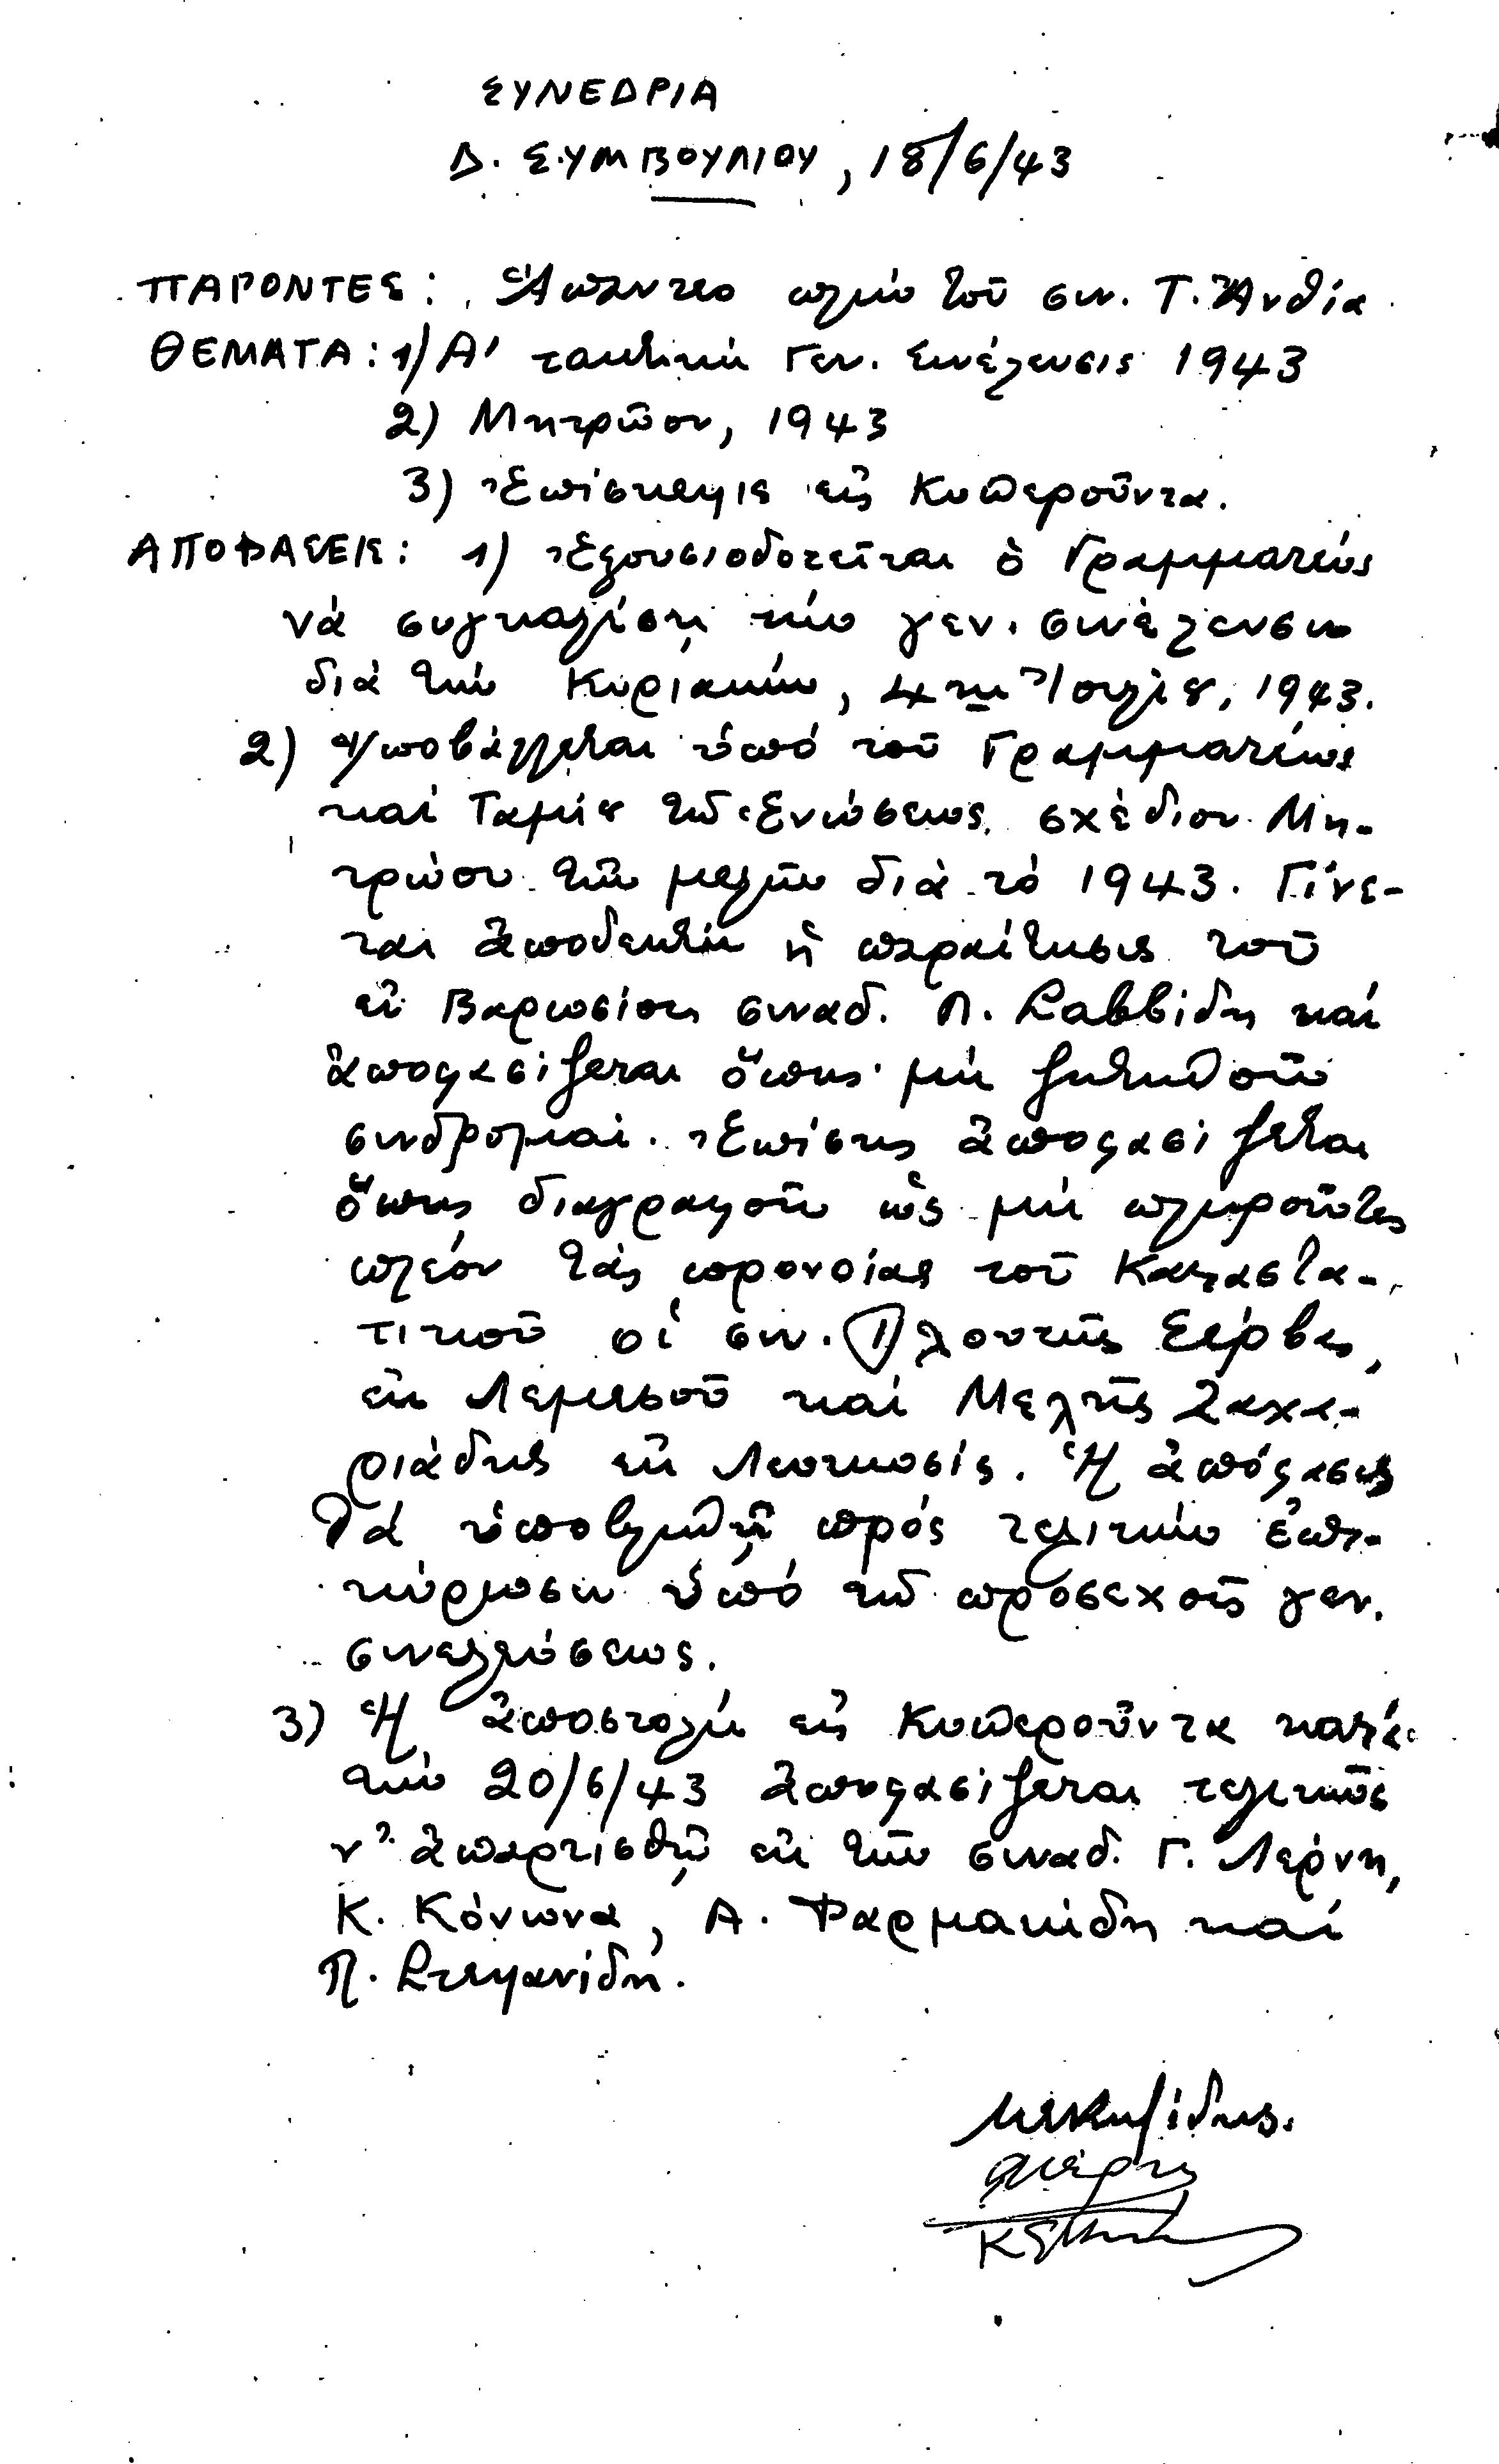 ΣΥΝΕΔΡΙΑ
Δ. ΣΥΜΒΟΥΛΙΟΥ, 18/6/43
ΠΑΡΟΝΤΕΣ: Ἅπαντες πλὴν τοῦ συν. Τ. Ἀνθία
ΘΕΜΑΤΑ: 1) Α' τακτικὴ Γεν. Συνέλευσις 1943
2) Μητρῶον, 1943
3) Ἐπίσκεψις εἰς Κυπεροῦντα.
ΑΠΟΦΑΣΕΙΣ: 1) Ἐξουσιοδοτεῖται ὁ Γραμματεὺς
νὰ συγκαλέσῃ τὴν γεν. συνέλευσιν
διὰ τὴν Κυριακὴν, 4ην Ἰουλίου, 1943.
2) Ὑποβάλλεται ὑπὸ τοῦ Γραμματέως
καὶ Ταμίου τῆς Ἑνώσεως σχέδιον Μη-
τρώου τῶν μελῶν διὰ τὸ 1943. Γίνε-
ται ἀποδεκτὴ ἡ παραίτησις τοῦ
ἐκ Βαρωσίων συναδ. Λ. Σαββίδη καὶ
ἀποφασίζεται ὅπως μὴ ζητηθοῦν
συνδρομαί. Ἐπίσης ἀποφασίζεται
ὅπως διαγραφοῦν ὡς μὴ πληροῦντες
πλέον τὰς προνοίας τοῦ Καταστα-
τικοῦ οἱ συν. Πλουτῆς Σέρβας,
ἐκ Λεμεσοῦ καὶ Μελῆς Ζαχα-
ριάδης ἐκ Λευκωσίας. Ἡ ἀπόφασις
θὰ ὑποβληθῇ πρὸς τελικὴν ἐπι-
κύρωσιν ὑπὸ τῆς προσεχοῦς γεν.
συνελεύσεως.
3) Ἡ ἀποστολὴ εἰς Κυπεροῦντα κατὰ
τὴν 20/6/43 ἀποφασίζεται τελικῶς
ν' ἀπαρτισθῇ ἐκ τῶν συναδ. Γ. Λέρνη,
Κ. Κόνωνα, Α. Φαρμακίδη καὶ
Π. Στεφανίδη.